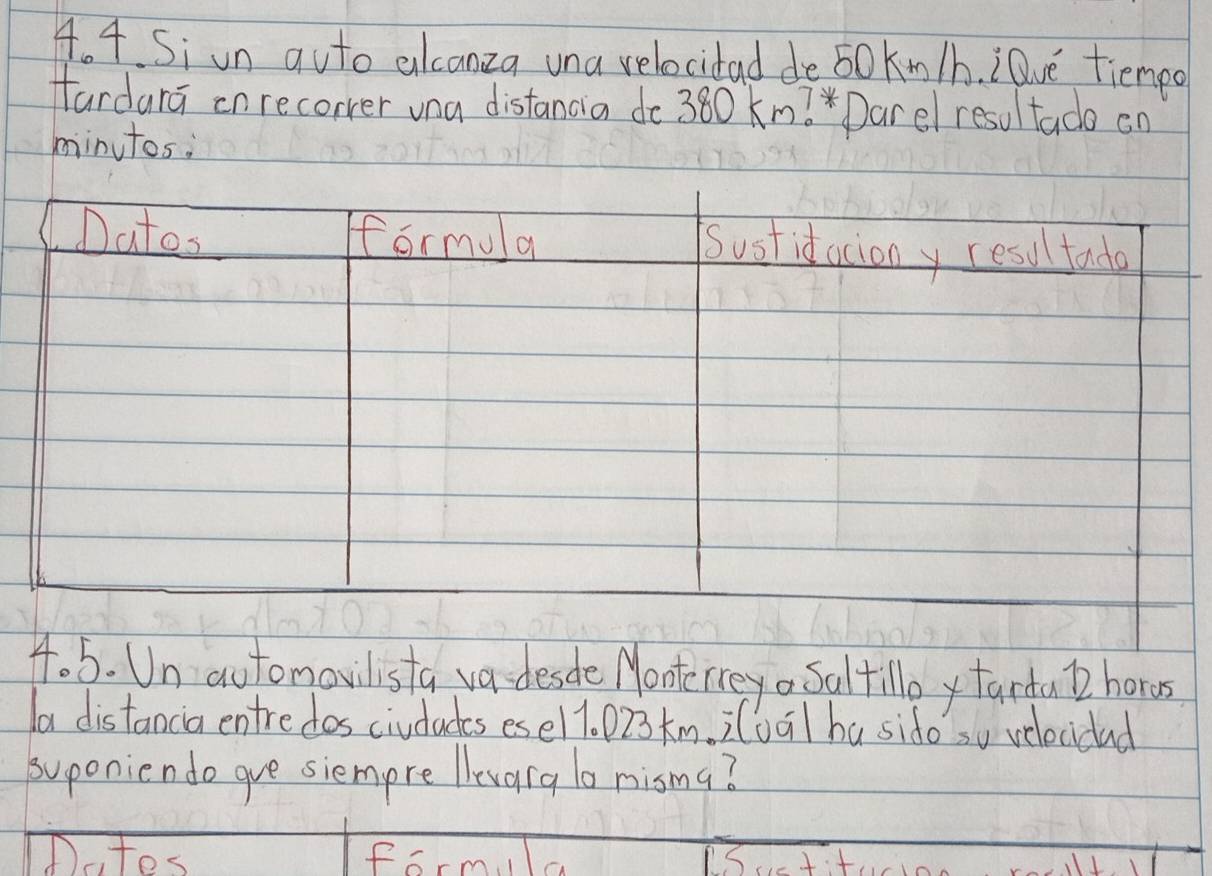 4.4. Si un auto alcanza una velocidad de 50 Km/h. ¿Qué tiempo
Tardará en recorrer una distancia de 380 Km? *Dar el resultado en
minutos:
Datos fórmula Sustitucion y resultado
4.5. Un automovilista va desde Monterrey a Saltillo y tarda 12 horas
la distancia entre dos ciudades es el 1.023 km. ¿Cuál ha sido su velocidad
suponiendo que siempre llevara la misma?
Datos fórmula